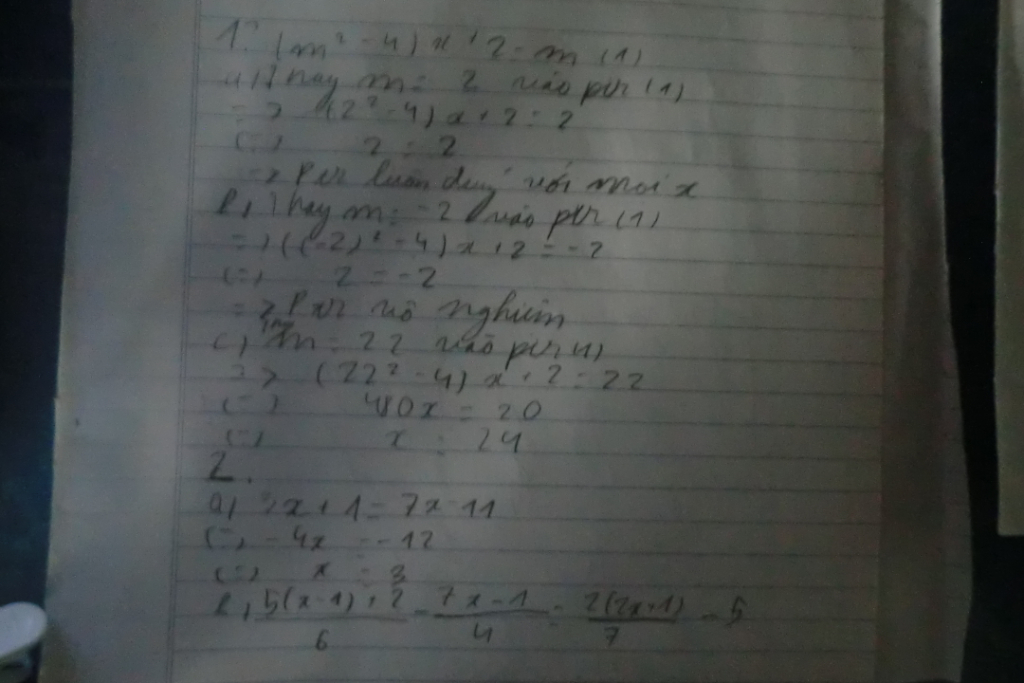 1. (m² - 4) x + 2 = m (1)
a, Thay m = 2 vào ptr (1)
=> (2² - 4) x + 2 = 2
(=) 2 = 2
=> Ptr luôn đúng với mọi x
b, Thay m = -2 vào ptr (1)
=> ((-2)² - 4) x + 2 = -2
(=) 2 = -2
=> Ptr vô nghiệm
c, Thay m = 22 vào ptr (1)
=> (22² - 4) x + 2 = 22
(=) 480x = 20
(=) x = 24
2.
a, 3x + 1 = 7x - 11
(=) -4x = -12
(=) x = 3
b, \frac{5(x-1)+2}{6} - \frac{7x-1}{4} = \frac{2(2x+1)}{7} - 5